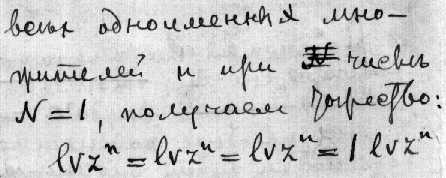 всех одноименных мно-
жителей и при числе
N = 1, получаем тождество:
lvzⁿ = lvzⁿ = lvzⁿ = 1 lvzⁿ